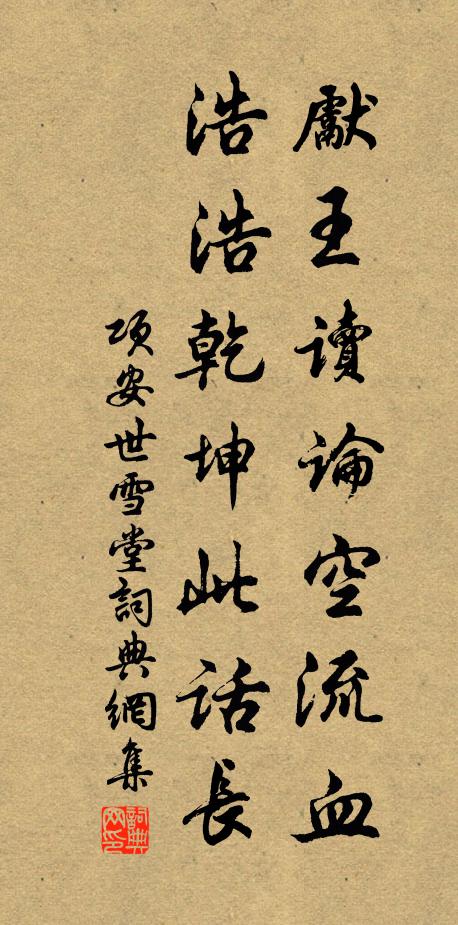 獻王讀論空流血
浩浩乾坤此話長
項安世雪堂詞典網集
詞典网印